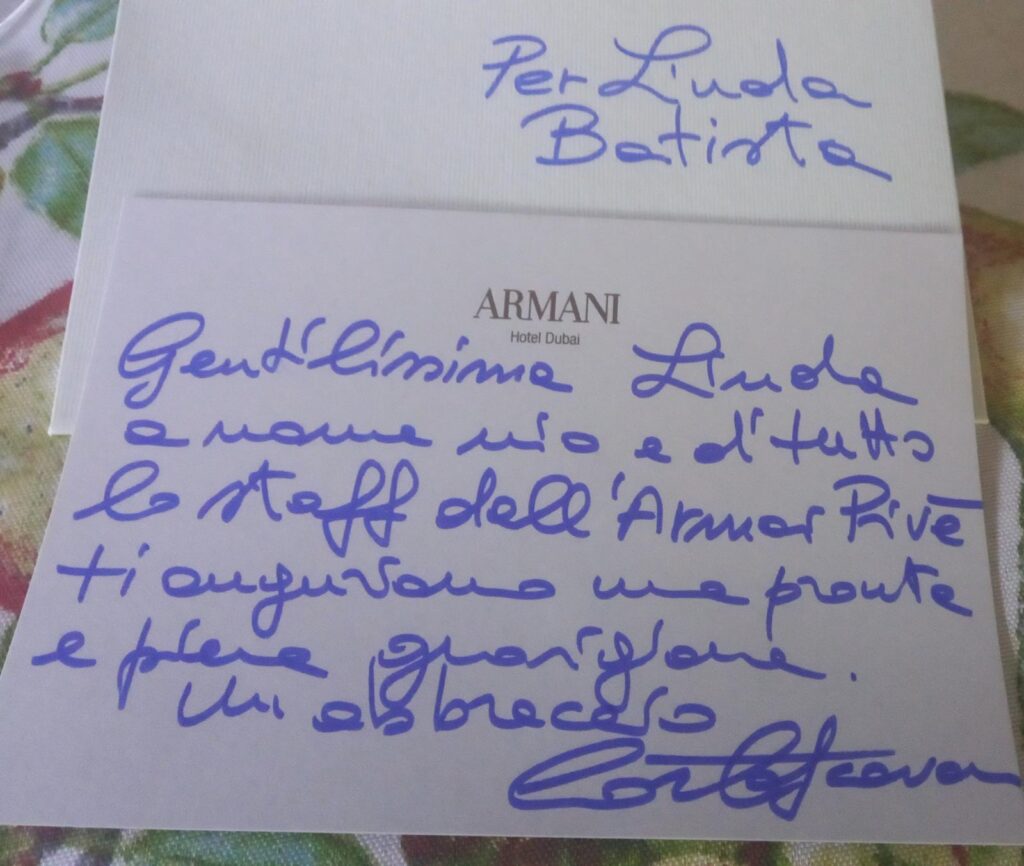 Per Linda
Batista
ARMANI
Hotel Dubai
Gentilissima Linda
a nome mio e di tutto
lo staff dell'Armani Privè
ti auguriamo una pronta
e piena guarigione.
Un abbraccio